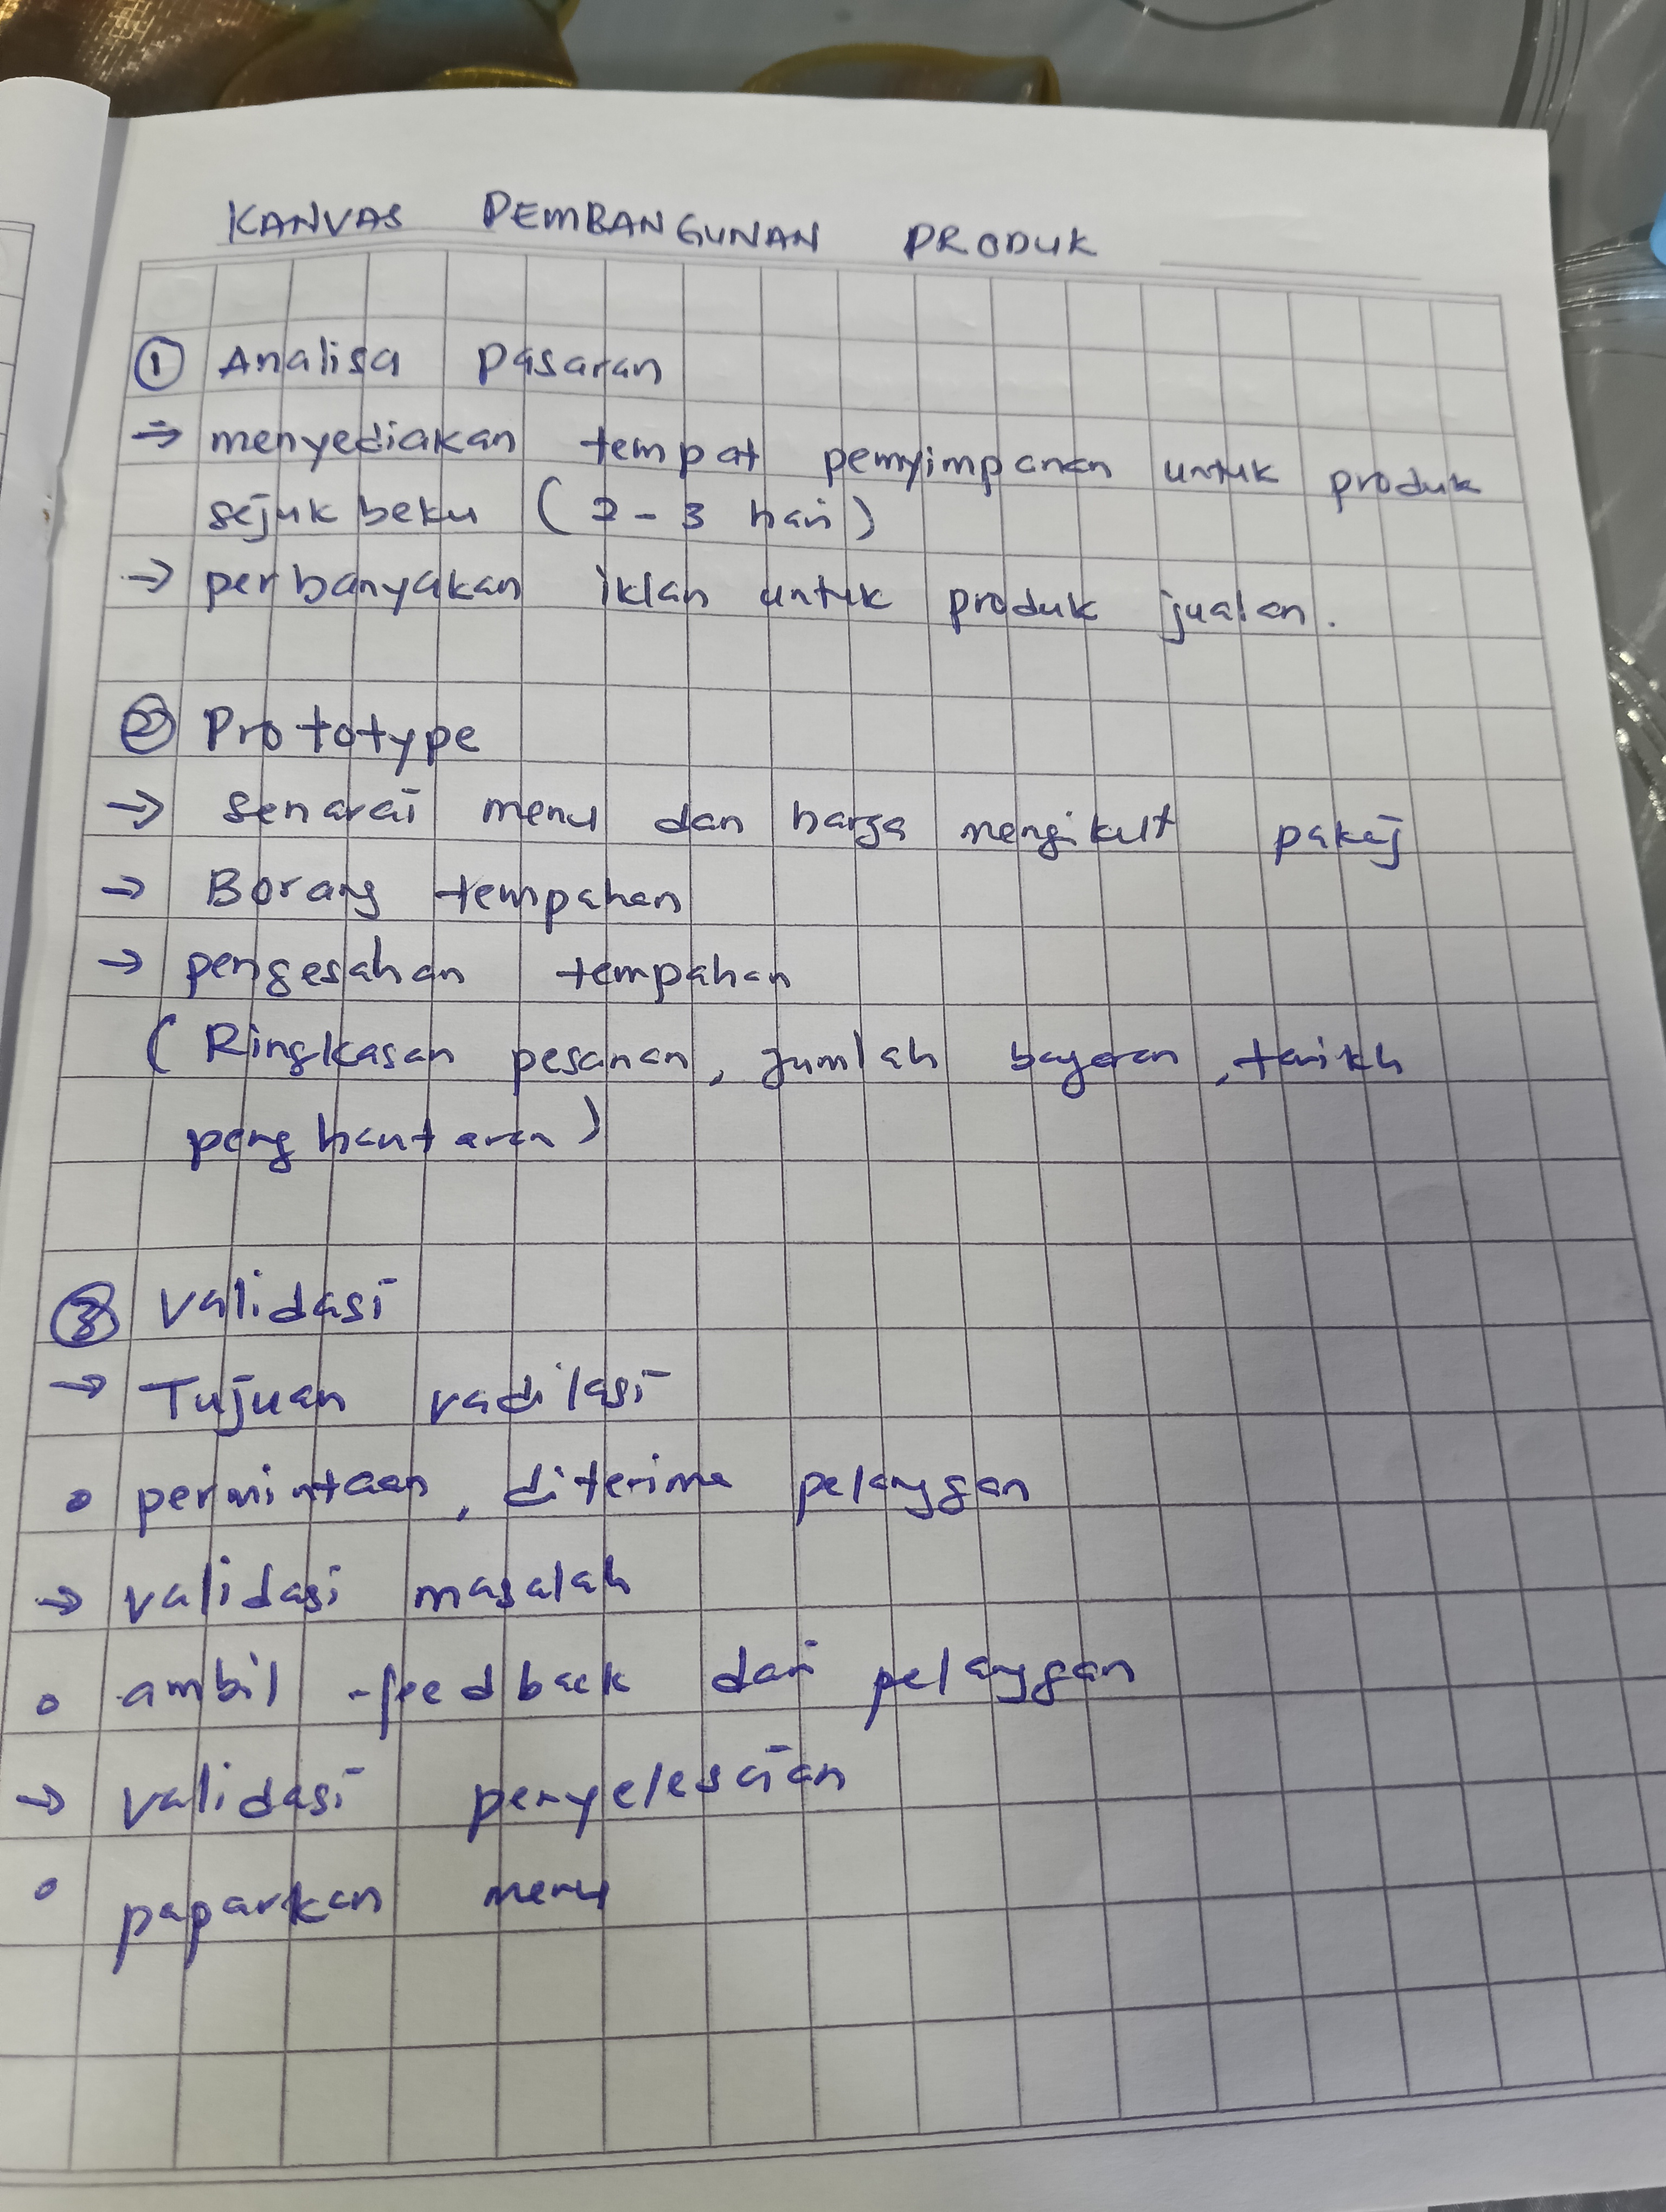 KANVAS PEMBANGUNAN PRODUK
① Analisa pasaran
→ menyediakan tempat penyimpanan untuk produk
sejuk beku (2-3 hari)
→ perbanyakan iklan untuk produk jualan.
② Prototype
→ Senarai menu dan harga mengikut pakej
→ Borang tempahan
→ pengesahan tempahan
(Ringkasan pesanan, jumlah bayaran, tarikh
penghantaran)
③ Validasi
→ Tujuan vadilasi
• permintaan, diterima pelanggan
→ validasi masalah
• ambil feedback dari pelanggan
→ validasi penyelesaian
• paparkan menu